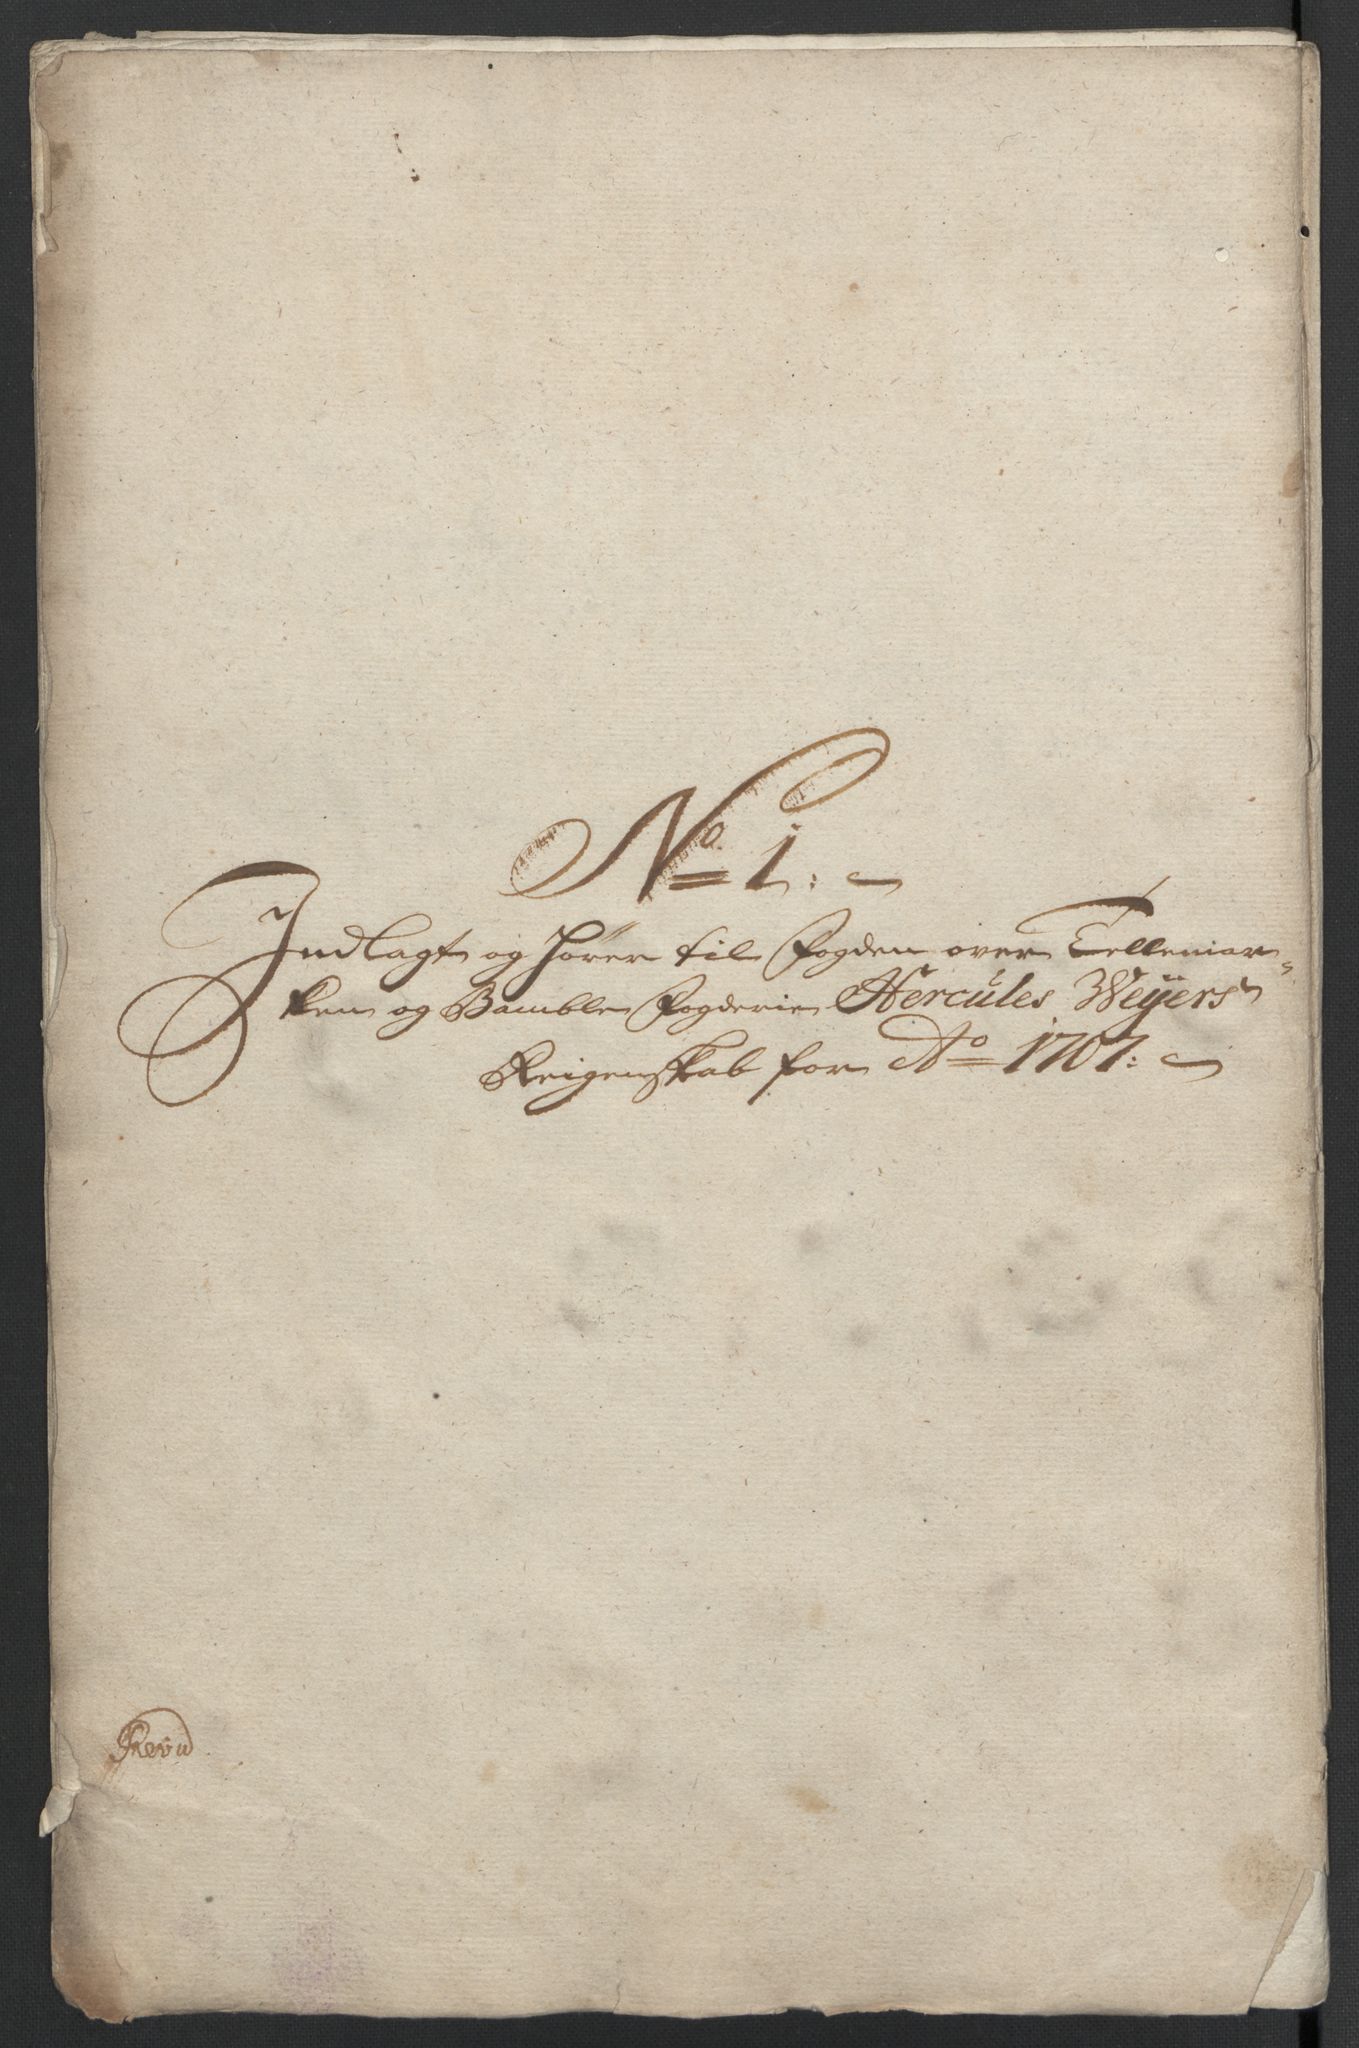 No 1:
Indlagt og hører til Fogden over Tellemar=
ken og Bamble Fogderie Hercules Weÿers
Reigenskab for Ao 1707: